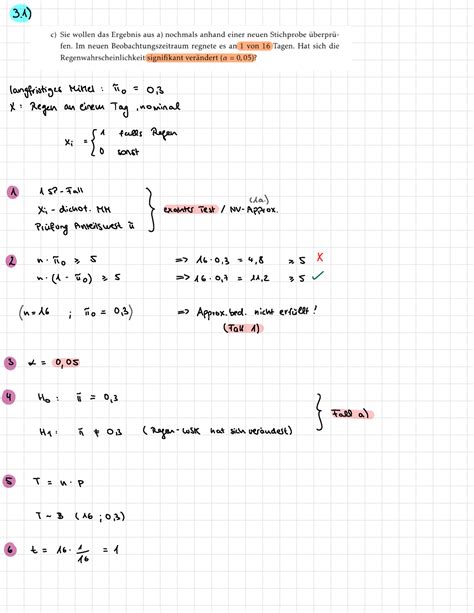 3.1)
c) Sie wollen das Ergebnis aus a) nochmals anhand einer neuen Stichprobe überprü-
fen. Im neuen Beobachtungszeitraum regnete es an 1 von 16 Tagen. Hat sich die
Regenwahrscheinlichkeit signifikant verändert (α = 0,05)?
langfristiges Mittel : π₀ = 0,3
X : Regen an einem Tag , nominal
xᵢ = { 1 falls Regen
0 sonst
1 1 SP-Fall
Xᵢ - dichot. MM } exakter Test / NV-Approx. (1a)
Prüfung Anteilswert π
2 n · π₀ ≥ 5 => 16 · 0,3 = 4,8 ≥ 5 ✗
n · (1 - π₀) ≥ 5 => 16 · 0,7 = 11,2 ≥ 5 ✓
(n = 16 ; π₀ = 0,3) => Approx.bed. nicht erfüllt !
(Fall 1)
3 α = 0,05
4 H₀ : π = 0,3
} Fall a)
H₁ : π ≠ 0,3 (Regen-WSK hat sich verändert)
5 T = n · P
T ~ B (16 ; 0,3)
6 t = 16 · 1/16 = 1